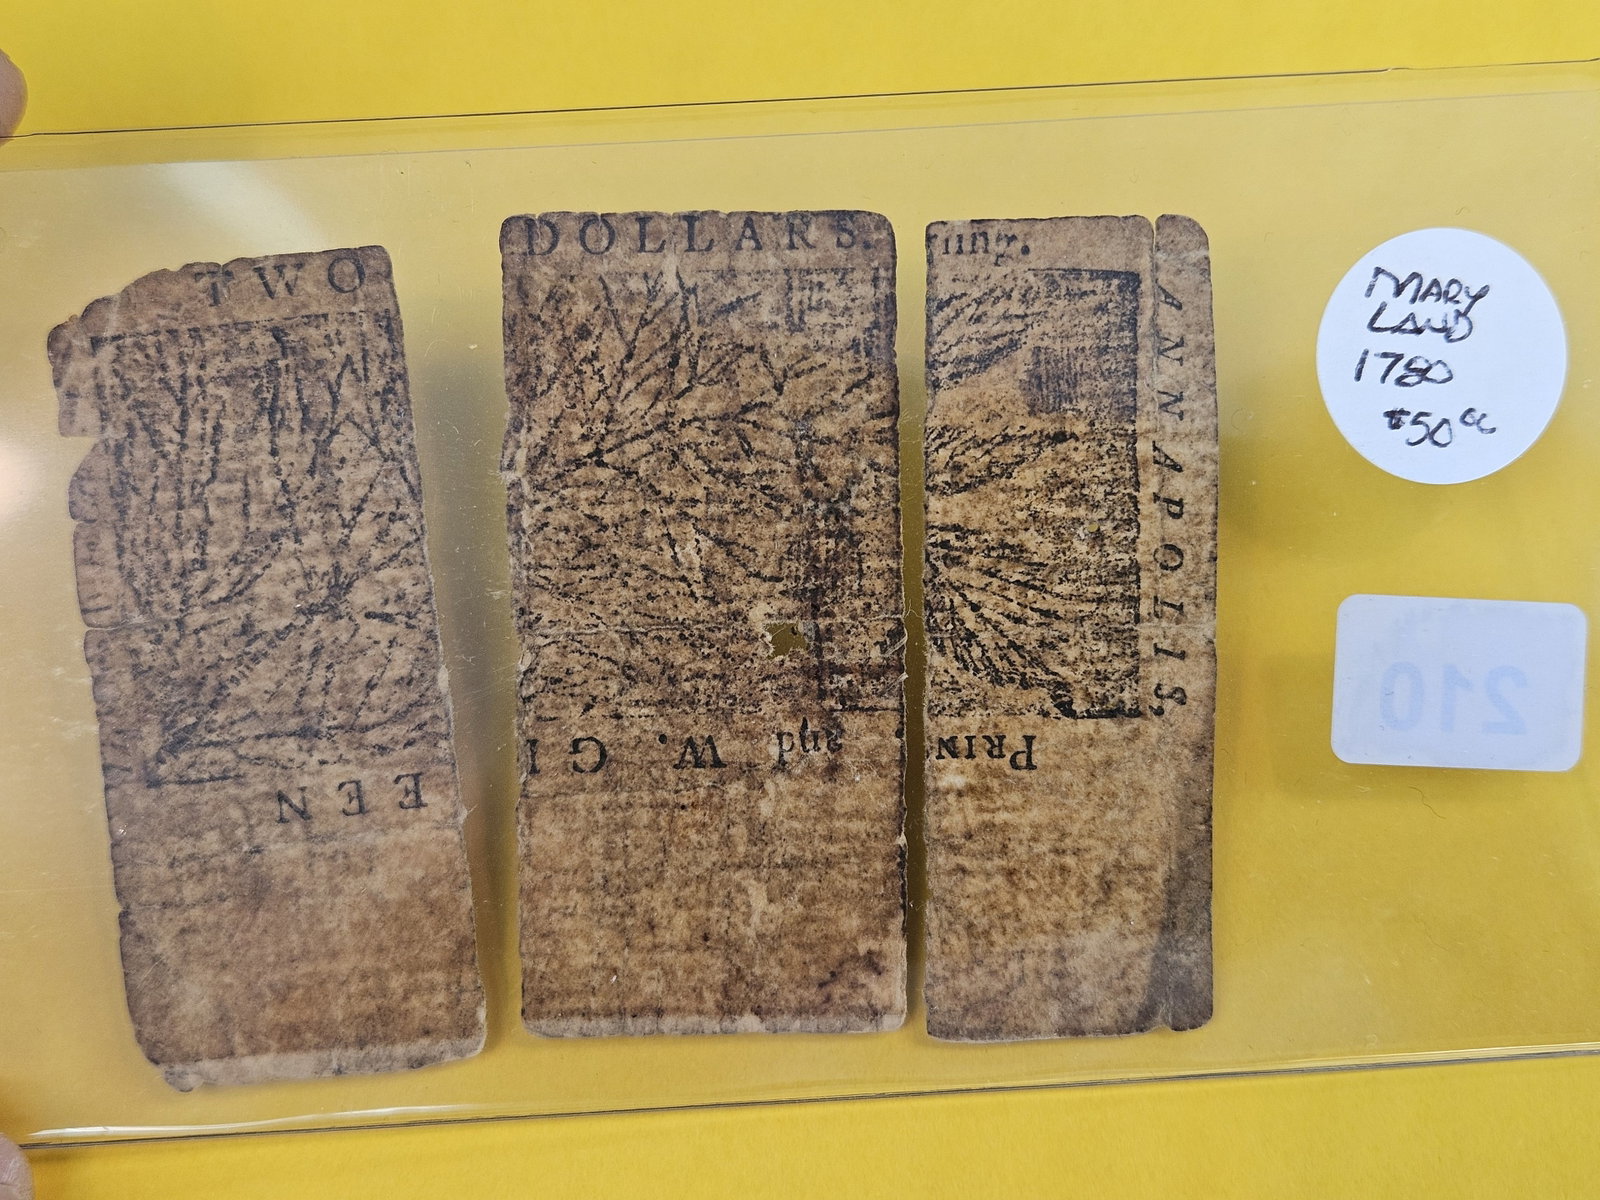 TWO
EEN
DOLLARS.
and W. G
ANNAPOLIS
PRIN
MARY
LAND
1780
$50
210